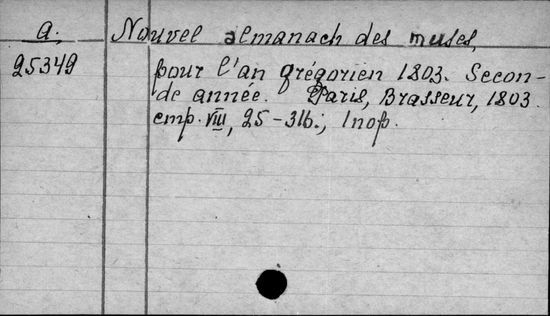 a. Nouvel almanach des muses,
25349 pour l'an grégorien 1803. Secon-
de année. Paris, Brasseur, 1803.
VIII, 25-316.;